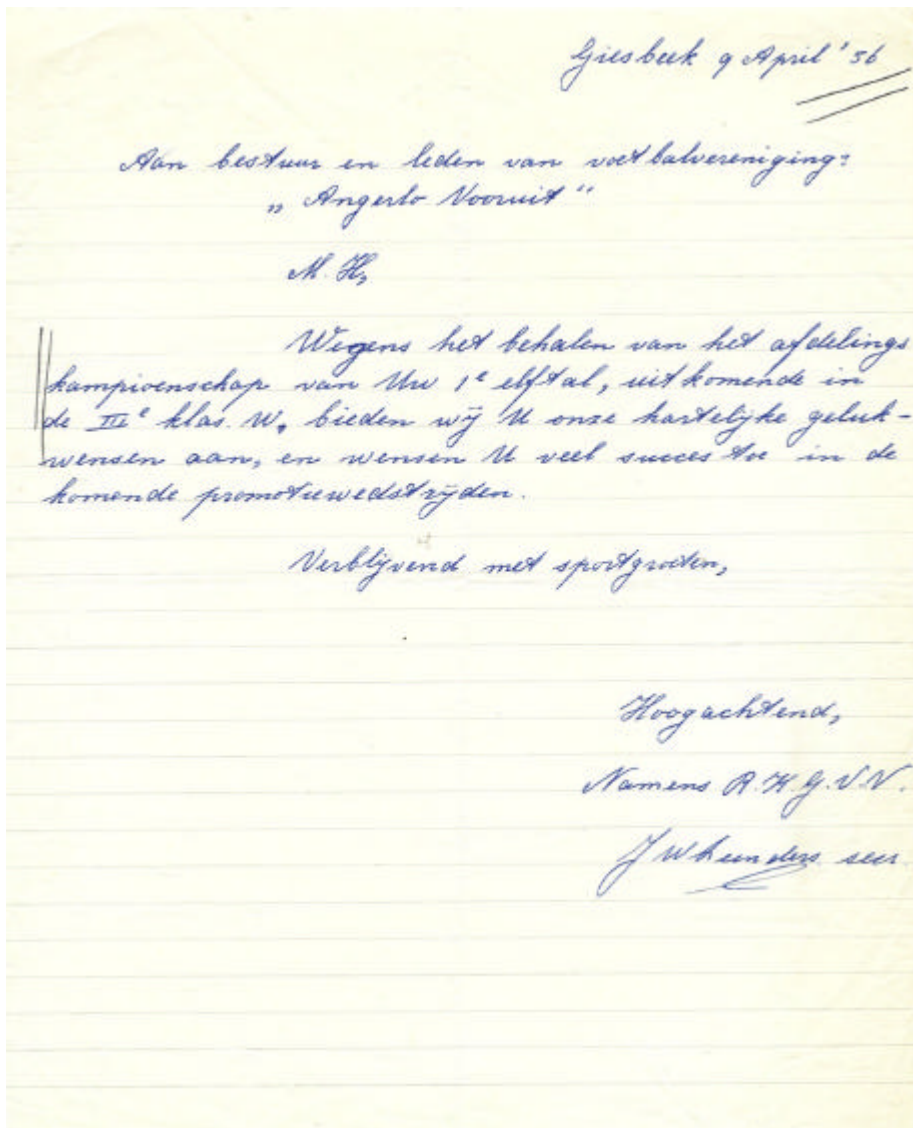 Giesbeek 9 April '56
Aan bestuur en leden van voetbalvereniging:
„ Angerlo Vooruit “
M. H,
Wegens het behalen van het afdelings
kampioenschap van Uw 1e elftal, uitkomende in
de IIIe klas. W, bieden wij U onze hartelijke geluk-
wensen aan, en wensen U veel succes toe in de
komende promotiewedstrijden.
Verblijvend met sportgroeten,
Hoogachtend,
Namens R.K.G.V.V.
J W secr